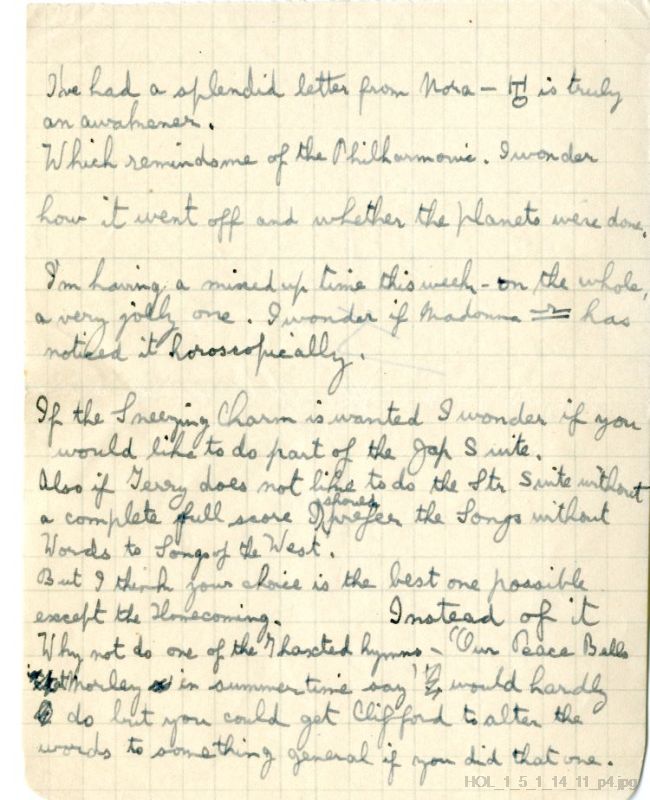 I've had a splendid letter from Nora — is truly
an awakener.
Which reminds me of the Philharmonic. I wonder
how it went off and whether the planets were done.
I'm having a mixed up time this week - on the whole,
a very jolly one. I wonder if Madonna ♎ has
noticed it horoscopically.
If the Sneezing Charm is wanted I wonder if you
would like to do part of the Jap Suite.
Also if Terry does not like to do the Str Suite without
a complete full score I should prefer the Songs without
Words to Songs of the West.
But I think your choice is the best one possible
except the Homecoming. Instead of it
Why not do one of the Thaxted hymns - "Our Peace Bells
at Morley in summertime say" would hardly
do but you could get Clifford to alter the
words to something general if you did that one.
HOL_1_5_1_14_11_p4.jpg